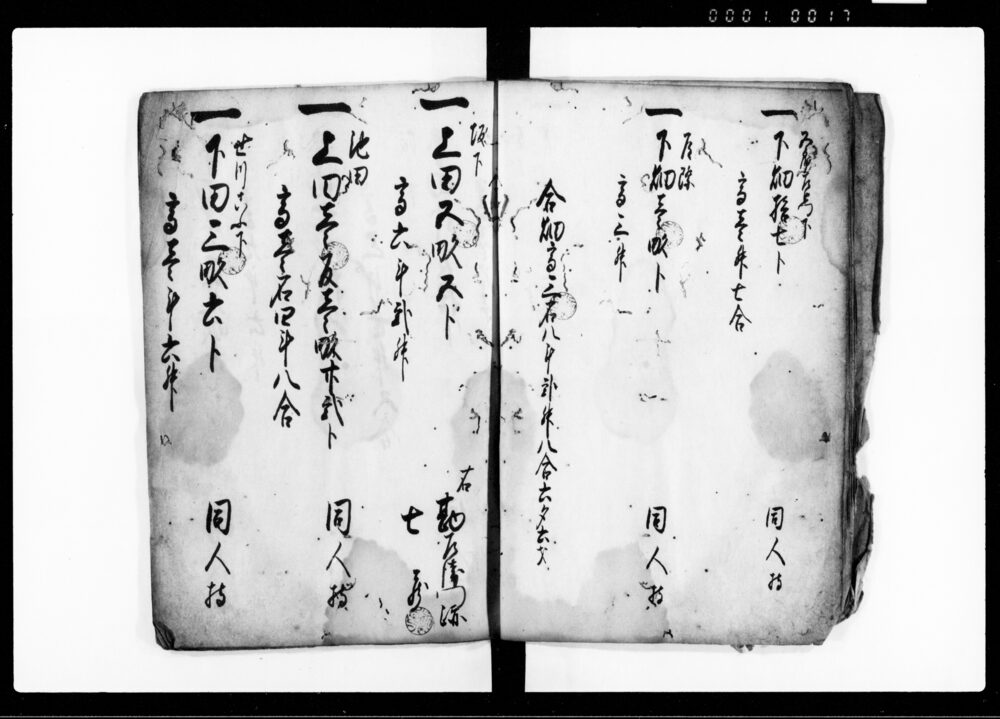 0001.0017
一 下畑拾七卜
高壱升七合
同人持
一 下畑壱畝卜
高三升
同人持
合畑高三石八斗弐升八合六夕六才
坂下
一 上田五畝五卜
高六斗弐升
右 勘左衛門
七
池田
一 上田壱反壱畝廿弐卜
高壱石四斗八合
同人持
一 下田三畝六卜
高壱斗六升
同人持